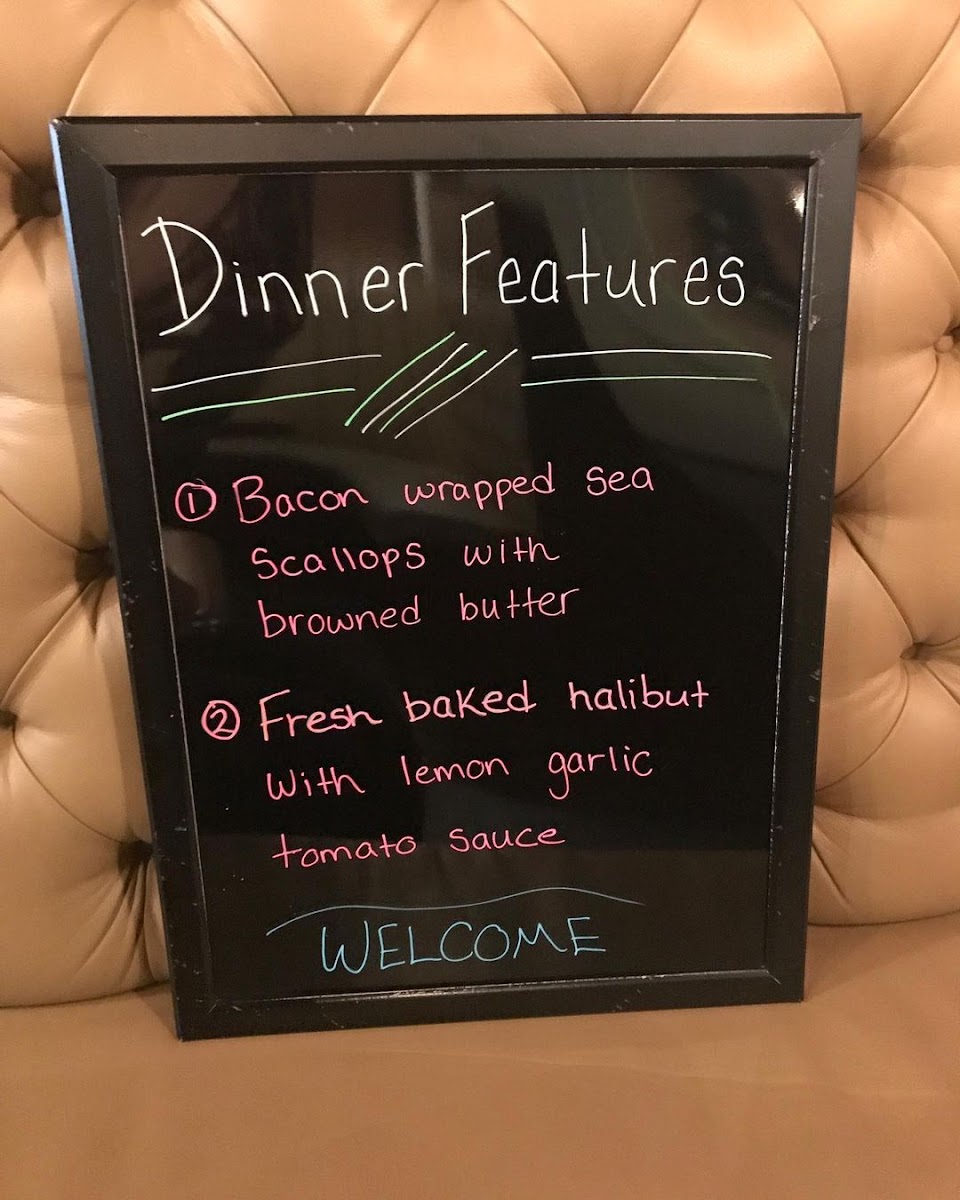 Dinner Features
① Bacon wrapped sea
scallops with
browned butter
② Fresh baked halibut
with lemon garlic
tomato sauce
WELCOME